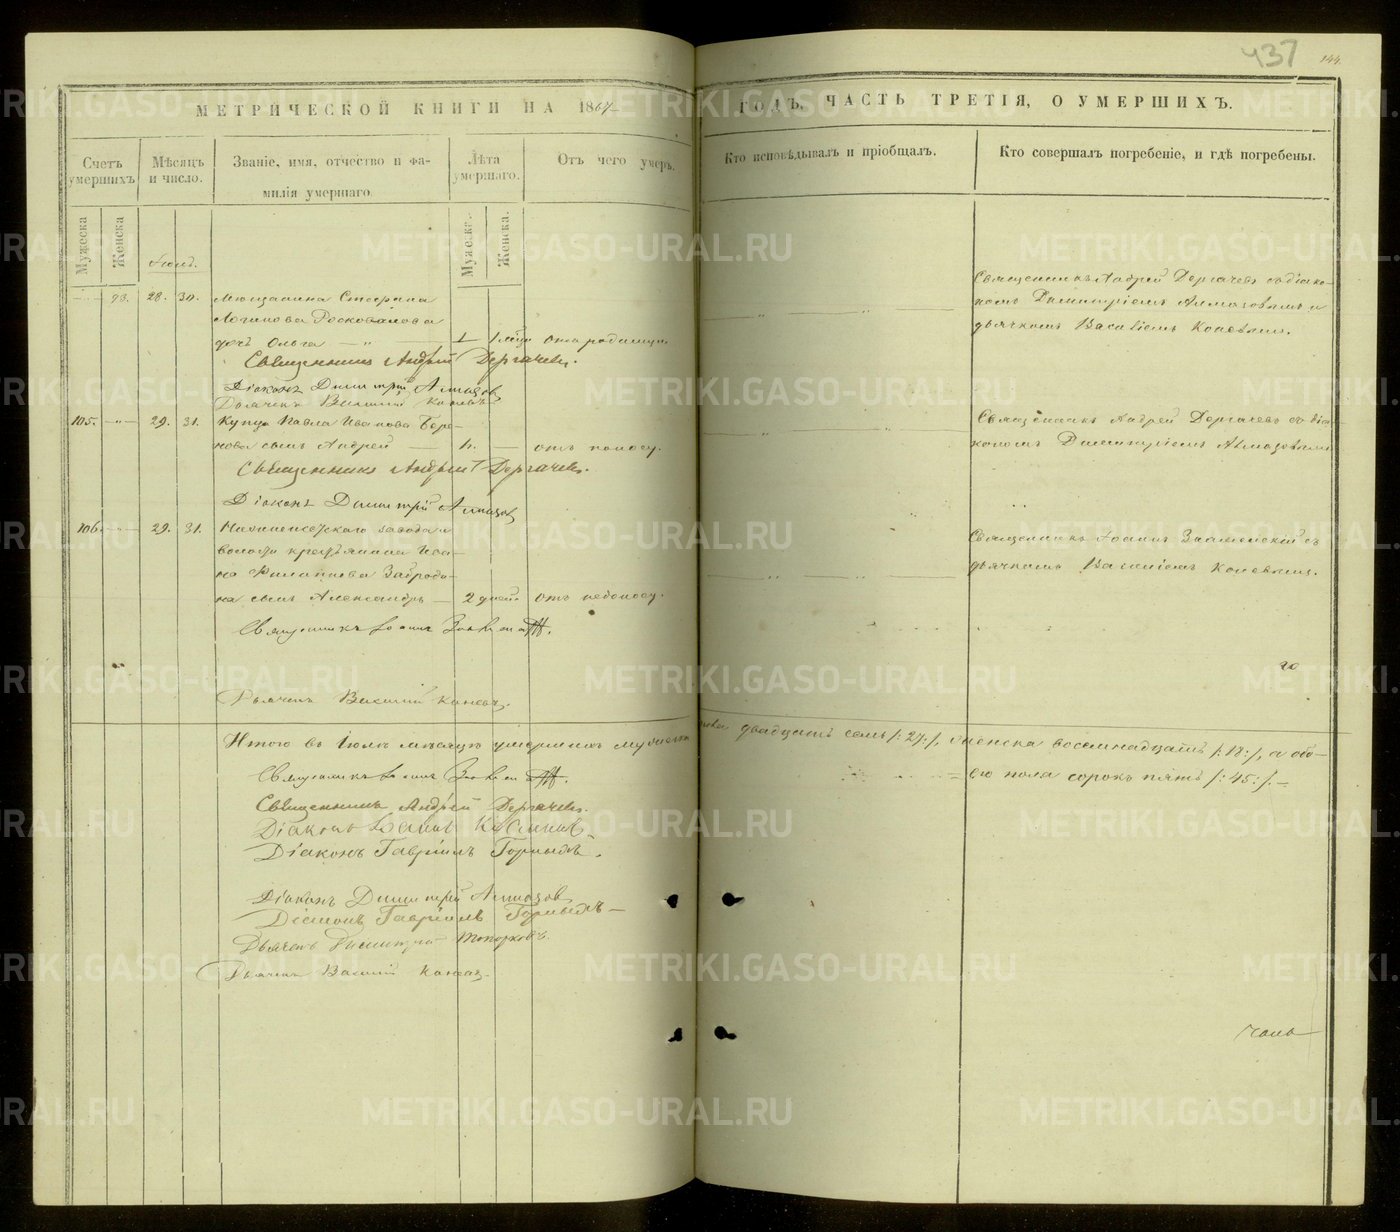 437
144.
МЕТРИЧЕСКОЙ КНИГИ НА 1864
ГОДЪ, ЧАСТЬ ТРЕТІЯ, О УМЕРШИХЪ.
Счетъ умершихъ.
Мѣсяцъ и число.
Званіе, имя, отчество и фамилія умершаго.
Лѣта умершаго.
Отъ чего умеръ.
Кто исповѣдывалъ и пріобщалъ.
Кто совершалъ погребеніе, и гдѣ погребены.
Мужеска
Женска
Мужеска.
Женска.
93. 28. 30. Мѣщанина Стефана
Логинова
дочь Ольга 1 отъ родимца.
Священникъ Андрей Дергачевъ съ діако-
номъ Димитріемъ Алмазовымъ и
дьячкомъ Василіемъ Коневымъ.
Священникъ Андрей Дергачевъ.
Діаконъ Димитрій Алмазовъ
Дьячекъ Василій Коневъ
105. 29. 31. Купца Павла Иванова
сынъ Андрей отъ поносу.
Священникъ Андрей Дергачевъ съ діа-
кономъ Димитріемъ Алмазовымъ
Священникъ Андрей Дергачевъ.
Діаконъ Димитрій Алмазовъ
106. 29. 31. завода и
волости крестьянина Ива-
на Филиппова
сынъ Александръ 2 дней отъ недоносу.
Священникъ Іоаннъ Знаменскій съ
дьячкомъ Василіемъ Коневымъ.
Священникъ Іоаннъ
Дьячекъ Василій Коневъ.
Итого въ Іюлѣ мѣсяцѣ умершихъ мужеска двадцать семь /:27:/, женска восемнадцать /:18:/, а обо-
его пола сорокъ пять /:45:/.
Священникъ Іоаннъ
Священникъ Андрей Дергачевъ.
Діаконъ
Діаконъ Гавріилъ
Діаконъ Димитрій Алмазовъ
Діаконъ Гавріилъ
Дьячекъ Димитрій Топорковъ.
Дьячекъ Василій Коневъ.
METRIKI.GASO-URAL.RU